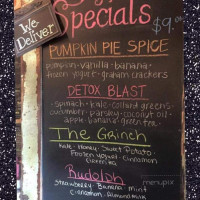 Specials
$9.
We
Deliver
PUMPKIN PIE SPICE
pumpkin · vanilla · banana ·
frozen yogurt · graham crackers
DETOX BLAST
· spinach · kale · collard greens ·
cucumber · parsley · coconut oil
apple · banana · green tea ·
The Grinch
kale · Honey · Sweet Potato ·
Frozen Yogurt · Cinnamon
Rudolph
Strawberry · Banana · mint
Cinnamon · Almond milk
menupix